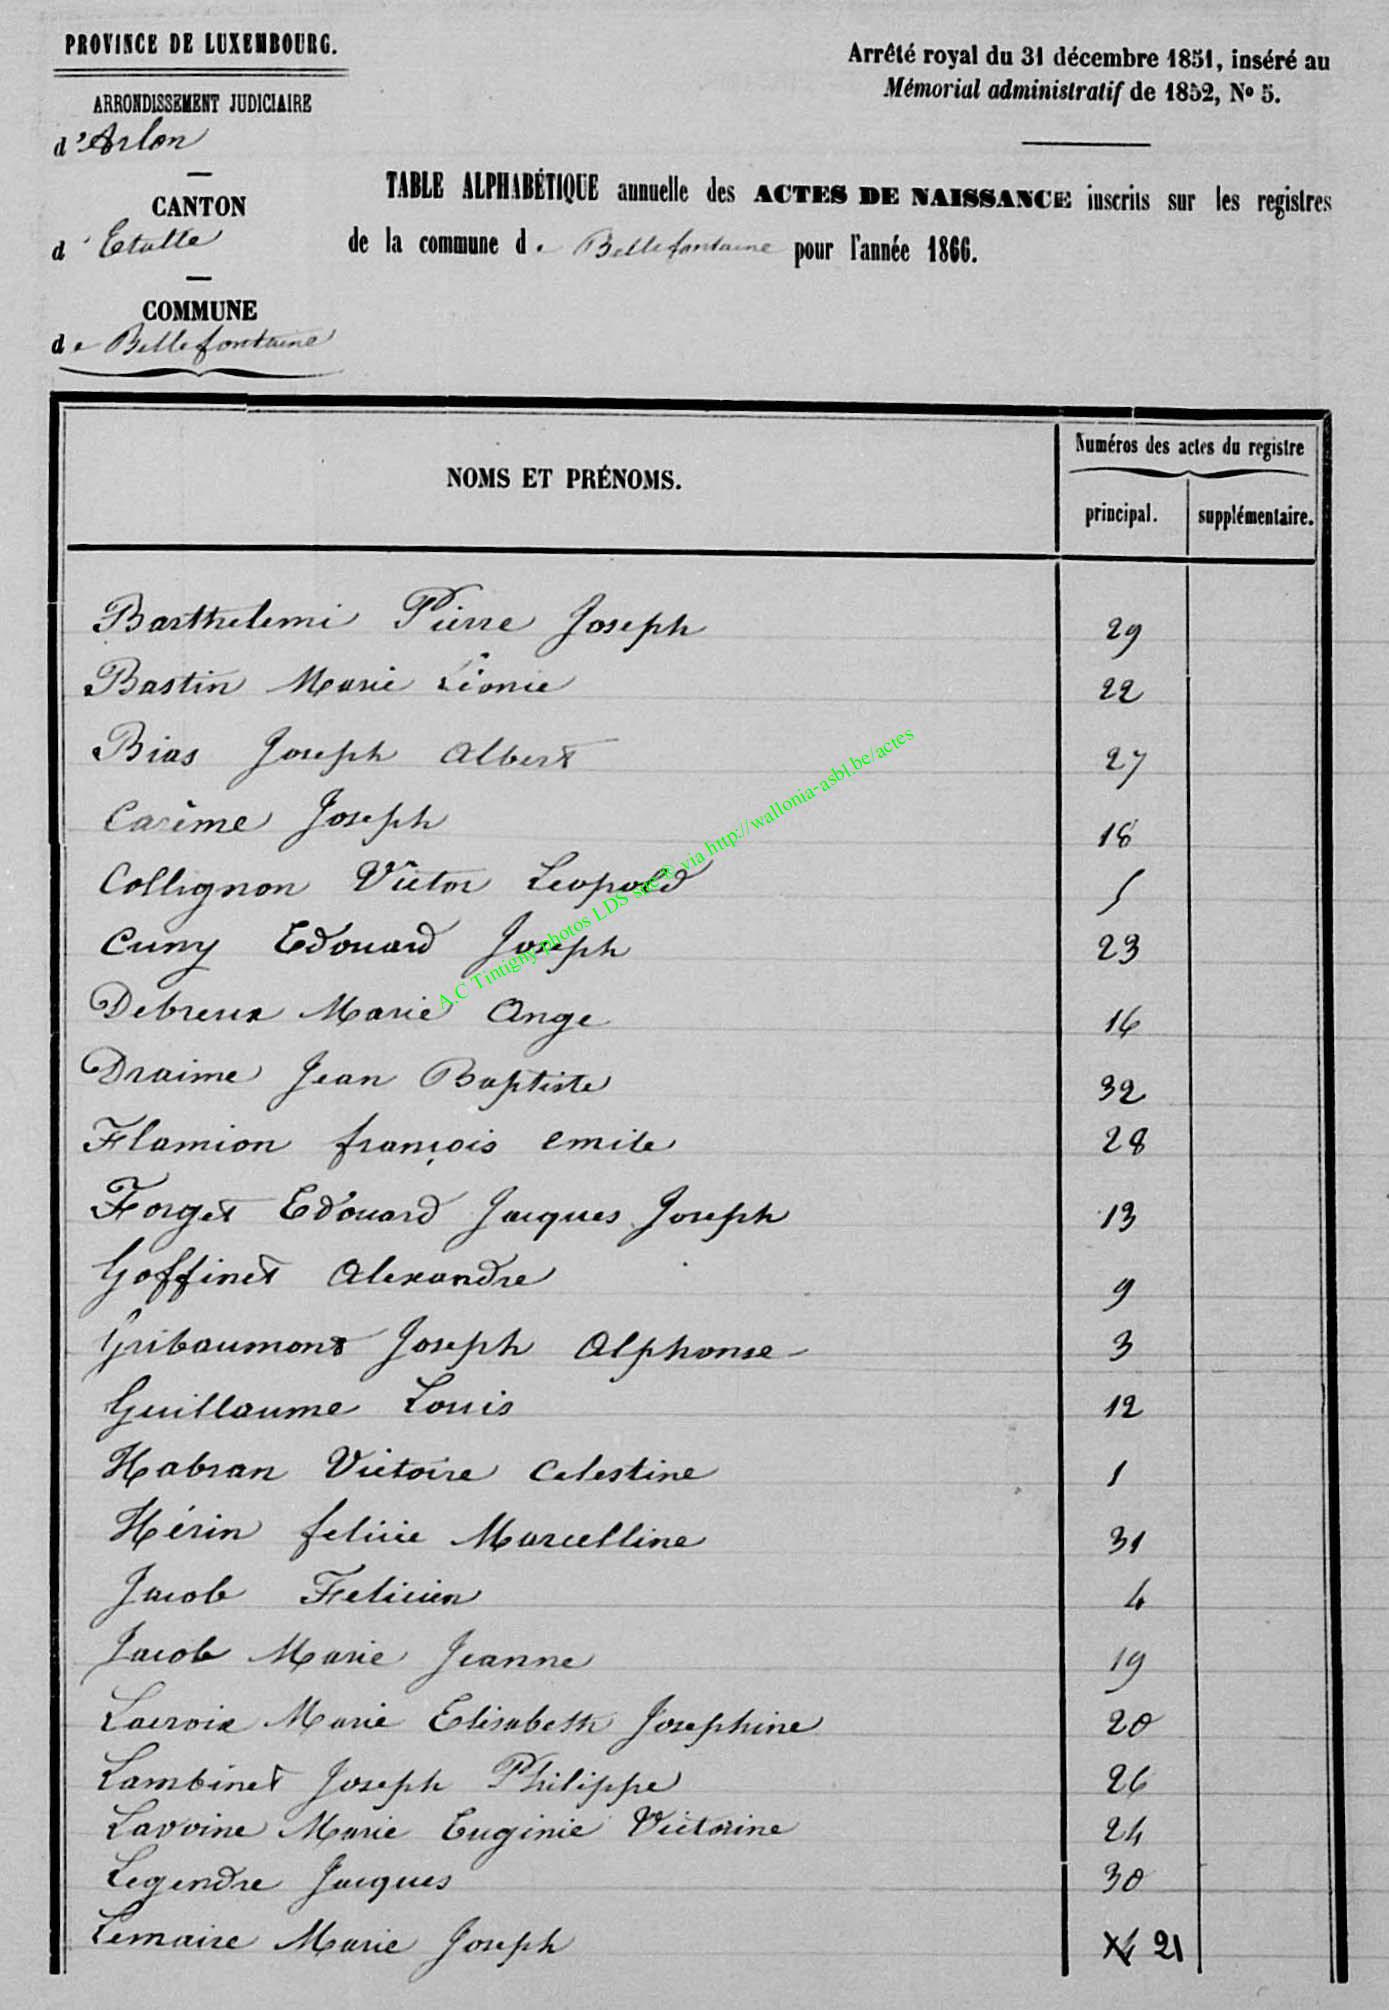 PROVINCE DE LUXEMBOURG.
ARRONDISSEMENT JUDICIAIRE
d'Arlon
CANTON
d'Etalle
COMMUNE
de Bellefontaine
Arrêté royal du 31 décembre 1851, inséré au
Mémorial administratif de 1852, No 5.
TABLE ALPHABÉTIQUE annuelle des ACTES DE NAISSANCE inscrits sur les registres
de la commune de Bellefontaine pour l'année 1866.
NOMS ET PRÉNOMS.
Numéros des actes du registre
principal. supplémentaire.
Barthelemi Pierre Joseph 29
Bastin Marie Léonie 22
Bias Joseph Albert 27
Carême Joseph 18
Collignon Victor Leopold 5
Cuny Edouard Joseph 23
Debreux Marie Ange 16
Draime Jean Baptiste 32
Flamion françois emile 28
Forget Edouard Jacques Joseph 13
Goffinet Alexandre 9
Gribaumont Joseph Alphonse 3
Guillaume Louis 12
Habran Victoire Celestine 1
Hérin felicie Marcelline 31
Jacob Felicien 4
Jacob Marie Jeanne 19
Lacroix Marie Elisabeth Josephine 20
Lambinet Joseph Philippe 26
Lavoine Marie Euginie Victorine 24
Legendre Jacques 30
Lemaire Marie Joseph 21
A.C Tintigny photos LDS sae® via http://wallonia-asbl.be/actes